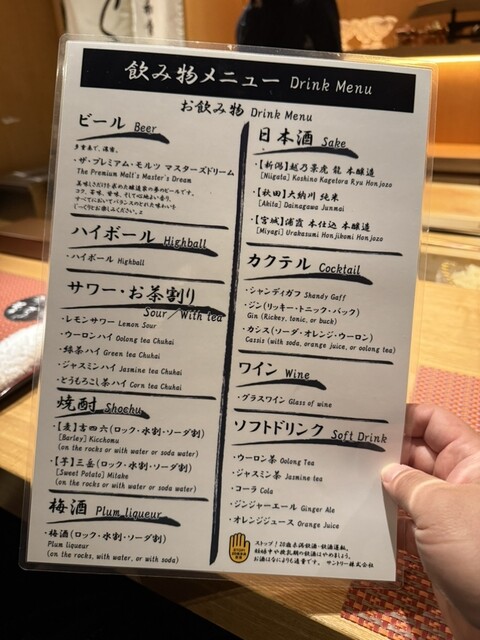 飲み物メニュー Drink Menu
お飲み物 Drink Menu
ビール Beer
・ザ・プレミアム・モルツ マスターズドリーム
The Premium Malt's Master's Dream
美味しさだけを求めた醸造家の夢のビールです。
コク、苦味、甘味、そして心地よい香り。
すべてにおいてバランスのとれた味わいを
じっくりとお楽しみください。
ハイボール Highball
・ハイボール Highball
サワー・お茶割り
Sour / With tea
・レモンサワー Lemon Sour
・ウーロンハイ Oolong tea Chuhai
・緑茶ハイ Green tea Chuhai
・ジャスミンハイ Jasmine tea Chuhai
・とうもろこし茶ハイ Corn tea Chuhai
焼酎 Shochu
・【麦】吉四六(ロック・水割・ソーダ割)
[Barley] Kicchomu
(on the rocks or with water or soda water)
・【芋】三岳(ロック・水割・ソーダ割)
[Sweet Potato] Mitake
(on the rocks or with water or soda water)
梅酒 Plum liqueur
・梅酒(ロック・水割・ソーダ割)
Plum liqueur
(on the rocks, with water, or with soda)
日本酒 Sake
・【新潟】越乃景虎 龍 本醸造
[Niigata] Koshino Kagetora Ryu Honjozo
・【秋田】大納川 純米
[Akita] Dainagawa Junmai
・【宮城】浦霞 本仕込 本醸造
[Miyagi] Urakasumi Honjikomi Honjozo
カクテル Cocktail
・シャンディガフ Shandy Gaff
・ジン(リッキー・トニック・バック)
Gin (Rickey, tonic, or buck)
・カシス(ソーダ・オレンジ・ウーロン)
Cassis (with soda, orange juice, or oolong tea)
ワイン Wine
・グラスワイン Glass of wine
ソフトドリンク Soft Drink
・ウーロン茶 Oolong Tea
・ジャスミン茶 Jasmine tea
・コーラ Cola
・ジンジャーエール Ginger Ale
・オレンジジュース Orange Juice
ストップ！20歳未満飲酒・飲酒運転。
妊娠中や授乳期の飲酒はやめましょう。
お酒はなによりも適量です。 サントリー株式会社